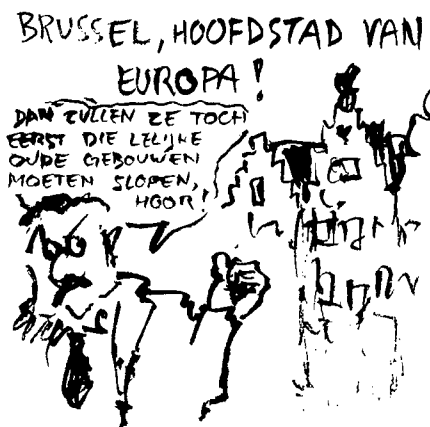 BRUSSEL, HOOFDSTAD VAN
EUROPA!
DAN ZULLEN ZE TOCH
EERST DIE LELIJKE
OUDE GEBOUWEN
MOETEN SLOPEN,
HOOR!